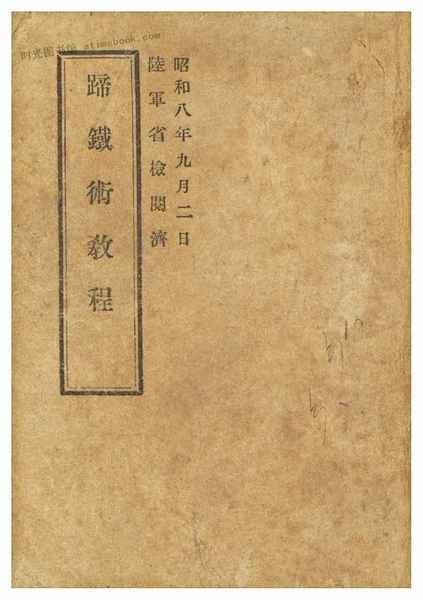 昭和八年九月二日
陸軍省檢閲濟
蹄鐵術教程
时光图书馆 atimebook.com